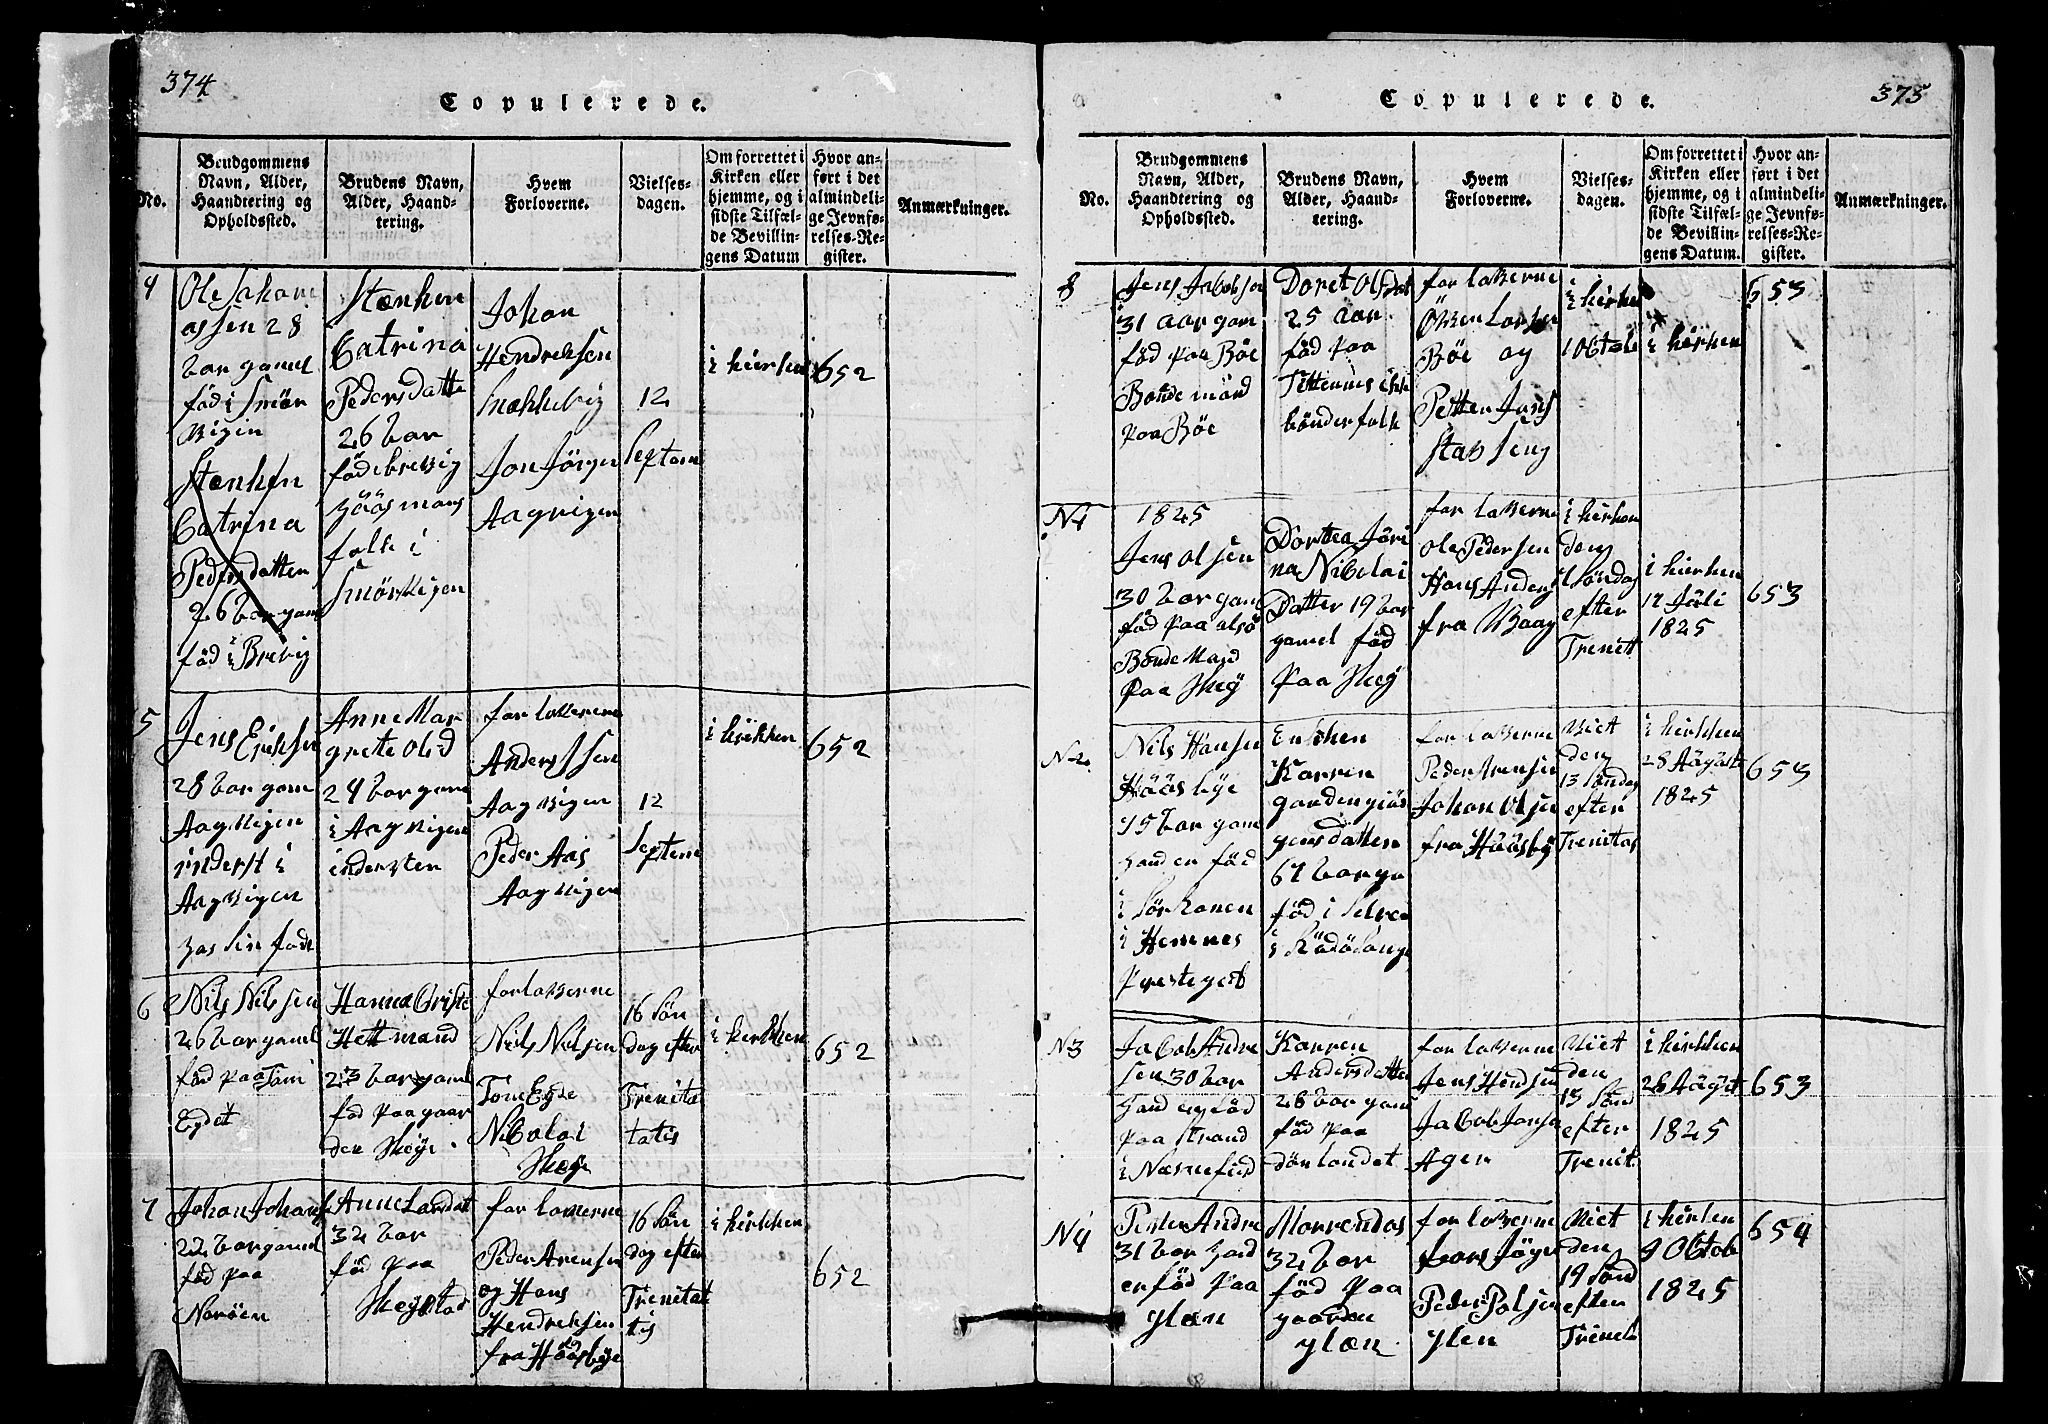 374
Copulerede.
No.
Brudgommens
Navn, Alder,
Haandtering og
Opholdssted.
Brudens Navn,
Alder, Haand-
tering.
Hvem
Forloverne.
Vielses-
dagen.
Om forrettet i
Kirken eller
hjemme, og i
sidste Tilfæl-
de Bevillin-
gens Datum
Hvor an-
ført i det
almindeli-
ge Jevnfø-
relses-Re-
gister.
Anmærkninger.
4
Ole Johan
assen 28
aar gamel
föd i Smör
vigin
Stenken
Catrina
Pedersdatter
26 aar gam
föd i Brevig
Stenken
Catrina
Pedersdatte
26 aar
föd i brevig
Hüüsmans
folk i
Smörvigen
Johan
Hendriksen
Jon Jörgen
Aagvigen
12
Septem
i kirken
652
5
Jens Eriksen
28 aar gam
Aagvigen
inderst i
Aagvigen
Anne Mar
grete olsd
24 aar gam
i Aagvigen
indersten
forloverne
Anders
Aagvigen
Peder Aas
Aagvigen
12
Septem
i kirken
652
6
Nils Nilsen
26 aar gaml
föd paa Tom
Eydet
Hanna Criste
Hettmand
23 aar gaml
föd paa gaar
den Skeye
forloverne
Nils Nilsen
Tom Eyde
Nicolai
Skey
16 Sön
dag efter
Trenitat
tatis
i kirkken
652
7
Johan Johans
22 aar gamel
föd paa
Noröen
Anne Larsdat
32 aar
föd paa
Skeystad
forloverne
Peder Arensen
og Hans
Hendriksen
fra Hüüsbye
16 Sön
dag efter
Trenitat
tis
i kirkken
652
375
Copulerede.
No.
Brudgommens
Navn, Alder,
Haandtering og
Opholdssted.
Brudens Navn,
Alder, Haand-
tering.
Hvem
Forloverne.
Vielses-
dagen.
Om forrettet i
Kirken eller
hjemme, og i
sidste Tilfæl-
de Bevillin-
gens Datum.
Hvor an-
ført i det
almindeli-
ge Jevnfø-
relses-Re-
gister.
Anmærkninger.
8
Jens Jacobsen
31 aar gam
föd paa Böe
Bonde mand
paa Böe
Doret Olsdat
25 aar
föd paa
bönder folk
forloverne
Larsen
Böe og
Petter Jans
Stavseng
i kirken
1 Octob
i kirken
653
N1
1825
Jens olsen
30 aar gam
föd paa alsö
Bonde Mand
paa Skey
Dortea Jöri
na Nicolai
Datter 19 aar
gamel föd
paa Skey
forloverne
ole Pedersen
Hans Anders
fra Vaag
i kirken
den
Söndag
efter
Trenitt
i kirken
17 Juli
1825
653
N2
Nils Hansen
Hüüsbye
75 aar gam
Hand er föd
i
i Hemnes
Prestegield
Enkken
Karren
67 aar ga
föd i
i
forloverne
Peder Arensen
Johan Olsen
fra Hüüsby
Viet
den
13 Söndag
efter
Trenitas
i kirkken
28 Aügüst
1825
653
N3
Jacob Andre
sen 30 aar
Hand er föd
paa Strand
i Næsnefiord
Karren
Andersdatter
28 aar gam
föd paa
dönlandet
forloverne
Jens Hensen
Jacob Jansen
Ager
Viet
den
13 Sönd
efter
Trenit
i kirkken
28 Aügst
1825
653
N4
Petter Andre
31 aar Hand
er föd paa
ylæn
Marrendas
32 aar
föd paa
gaarden
ylæn
forloverne
Lars Jöge
Peder Polsen
ylen
Viet
den
19 Sönd
efter
Trinit
i kirken
9 Octob
1825
654